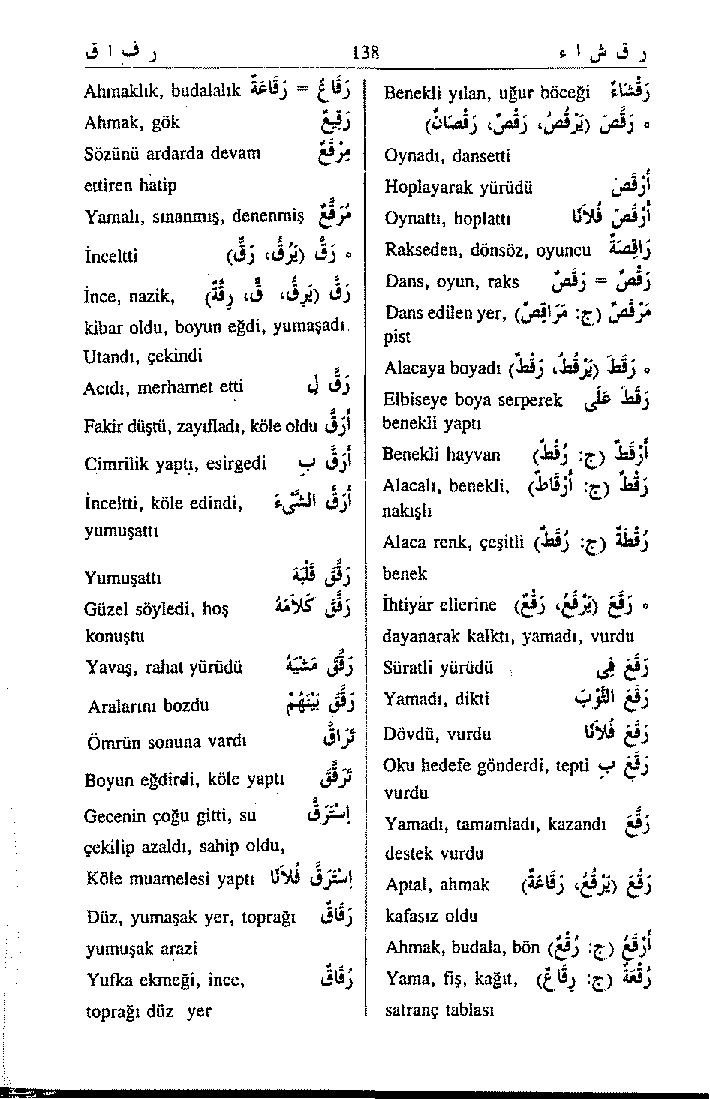 ر ق ش ا ء 138 ر ف ا ق
Benekli yılan, uğur böceği رَقْشَاءُ
° رَقَصَ (يَرْقُصُ، رَقْصٌ، رَقَصَانٌ)
Oynadı, dansetti
Hoplayarak yürüdü أَرْقَصَ
Oynattı, hoplattı أَرْقَصَ فُلَانًا
Rakseden, dönsöz, oyuncu رَاقِصَةٌ
Dans, oyun, raks رَقَصٌ = رَقْصٌ
Dans edilen yer, مَرْقَصٌ (ج: مَرَاقِصُ)
pist
Alacaya boyadı ° رَقَطَ (يَرْقُطُ، رَقْطٌ)
Elbiseye boya serperek رَقَطَ عَلَى
benekli yaptı
Benekli hayvan أَرْقَطُ (ج: رُقْطٌ)
Alacalı, benekli, رَقَطٌ (ج: أَرْقَاطٌ)
nakışlı
Alaca renk, çeşitli رُقْطَةٌ (ج: رُقَطٌ)
benek
İhtiyâr ellerine ° رَقَعَ (يَرْقَعُ، رَقْعٌ)
dayanarak kalktı, yamadı, vurdu
Süratli yürüdü رَقَعَ فِي
Yamadı, dikti رَقَعَ الثَّوْبَ
Dövdü, vurdu رَقَعَ فُلَانًا
Oku hedefe gönderdi, tepti رَقَعَ بِ
vurdu
Yamadı, tamamladı, kazandı رَقَّعَ
destek vurdu
Aptal, ahmak رَقُعَ (يَرْقُعُ، رَقَاعَةٌ)
kafasız oldu
Ahmak, budala, bön أَرْقَعُ (ج: رُقْعٌ)
Yama, fiş, kağıt, رُقْعَةٌ (ج: رِقَاعٌ)
satranç tablası
Ahmaklık, budalalık رَقَاعٌ = رَقَاعَةٌ
Ahmak, gök رَقِيعٌ
Sözünü ardarda devam مِرْقَعٌ
ettiren hatip
Yamalı, sınanmış, denenmiş مُرَقَّعٌ
İnceltti ° رَقَّ (يَرُقُّ، رَقٌّ)
İnce, nazik, رَقَّ (يَرِقُّ، قَّ، رِقَّةٌ)
kibar oldu, boyun eğdi, yumaşadı.
Utandı, çekindi
Acıdı, merhamet etti رَقَّ لِ
Fakir düştü, zayıfladı, köle oldu أَرَقَّ
Cimrilik yaptı, esirgedi أَرَقَّ بِ
İnceltti, köle edindi, أَرَقَّ الشَّيْءَ
yumuşattı
Yumuşattı رَقَّقَ قَلْبَهُ
Güzel söyledi, hoş رَقَّقَ كَلَامَهُ
konuştu
Yavaş, rahat yürüdü رَقَّقَ مَشْيَهُ
Aralarını bozdu رَقَّقَ بَيْنَهُمْ
Ömrün sonuna vardı تَرَاقَّ
Boyun eğdirdi, köle yaptı تَرَقَّقَ
Gecenin çoğu gitti, su إِسْتَرَقَّ
çekilip azaldı, sahip oldu,
Köle muamelesi yaptı إِسْتَرَقَّ فُلَانًا
Düz, yumaşak yer, toprağı رَقَاقٌ
yumuşak arazi
Yufka ekmeği, ince, رُقَاقٌ
toprağı düz yer